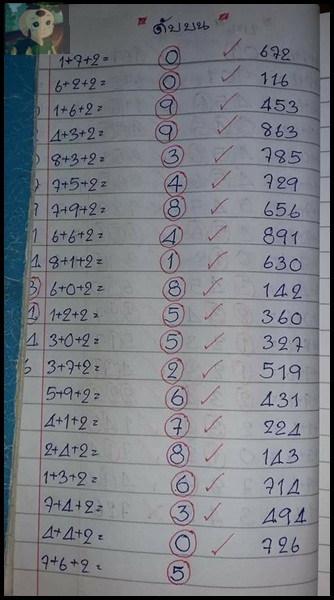 ดับบน
1+7+2= 0 ✓ 672
6+2+2= 0 ✓ 116
1+6+2= 9 ✓ 453
4+3+2= 9 ✓ 863
8+3+2= 3 ✓ 785
7+5+2= 4 ✓ 729
7+9+2= 8 ✓ 656
6+6+2= 4 ✓ 891
8+1+2= 1 ✓ 630
6+0+2= 8 ✓ 142
1+2+2= 5 ✓ 360
3+0+2= 5 ✓ 327
3+7+2= 2 ✓ 519
5+9+2= 6 ✓ 431
4+1+2= 7 ✓ 224
2+4+2= 8 ✓ 143
1+3+2= 6 ✓ 714
7+4+2= 3 ✓ 494
4+4+2= 0 ✓ 726
7+6+2= 5